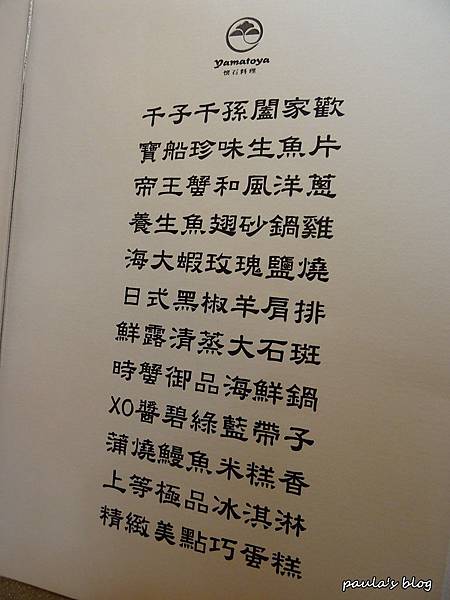 yamatoya
懷石料理
千子千孫闔家歡
寶船珍味生魚片
帝王蟹和風洋蔥
養生魚翅砂鍋雞
海大蝦玫瑰鹽燒
日式黑椒羊肩排
鮮露清蒸大石斑
時蟹御品海鮮鍋
XO醬碧綠藍帶子
蒲燒鰻魚米糕香
上等極品冰淇淋
精緻美點巧蛋糕
paula's blog